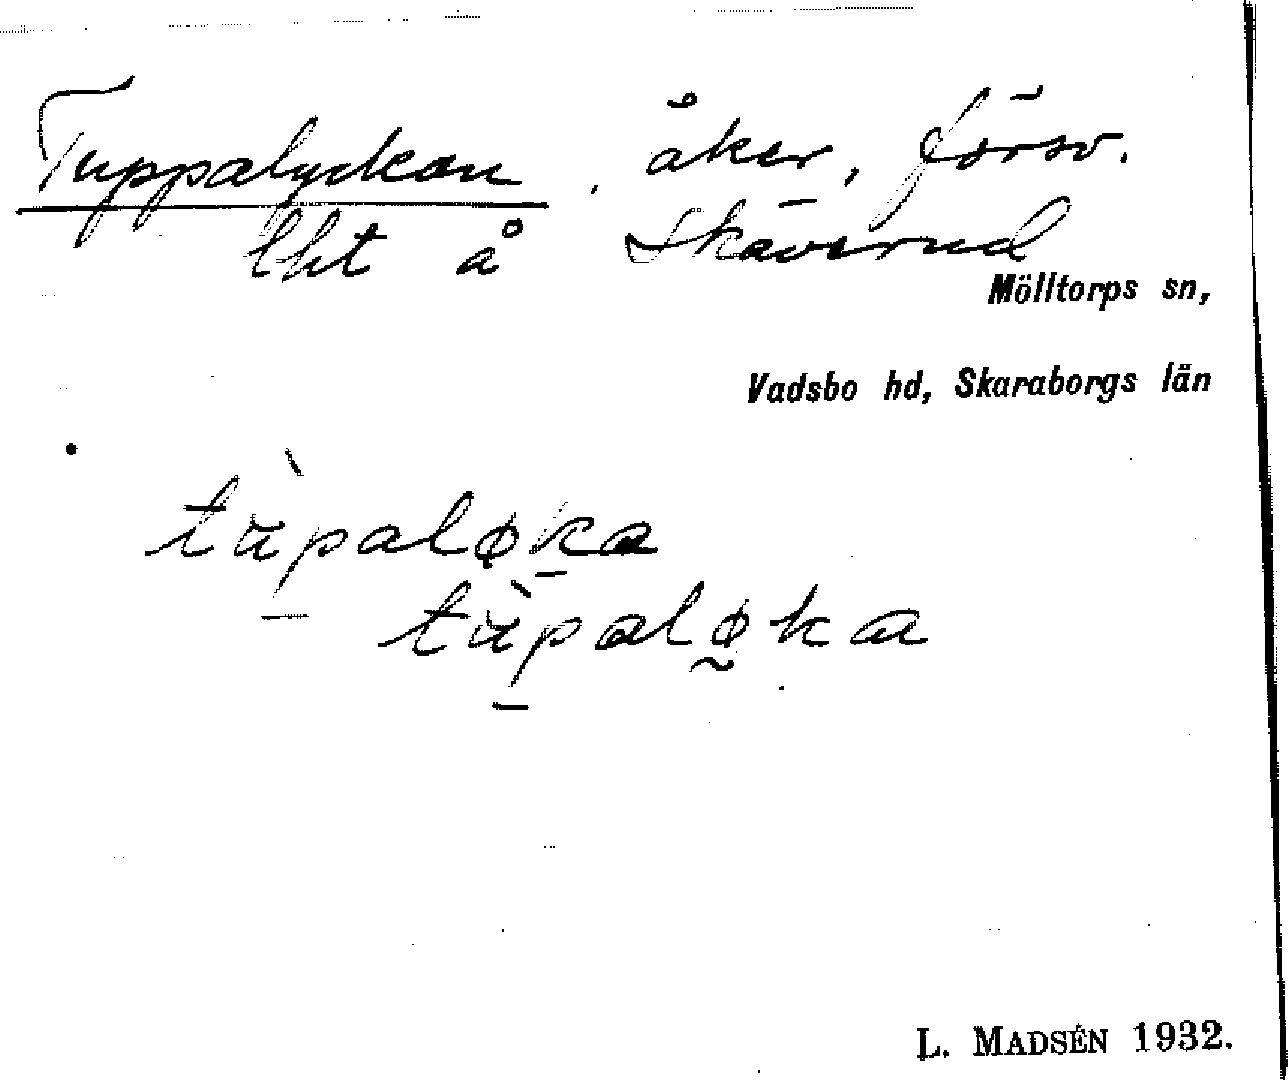 Tuppalyckan, åker, försv.
lht å Skäverud
Mölltorps sn,
Vadsbo hd, Skaraborgs län
tùpaløka
tùpaløka
L. MADSÉN 1932.